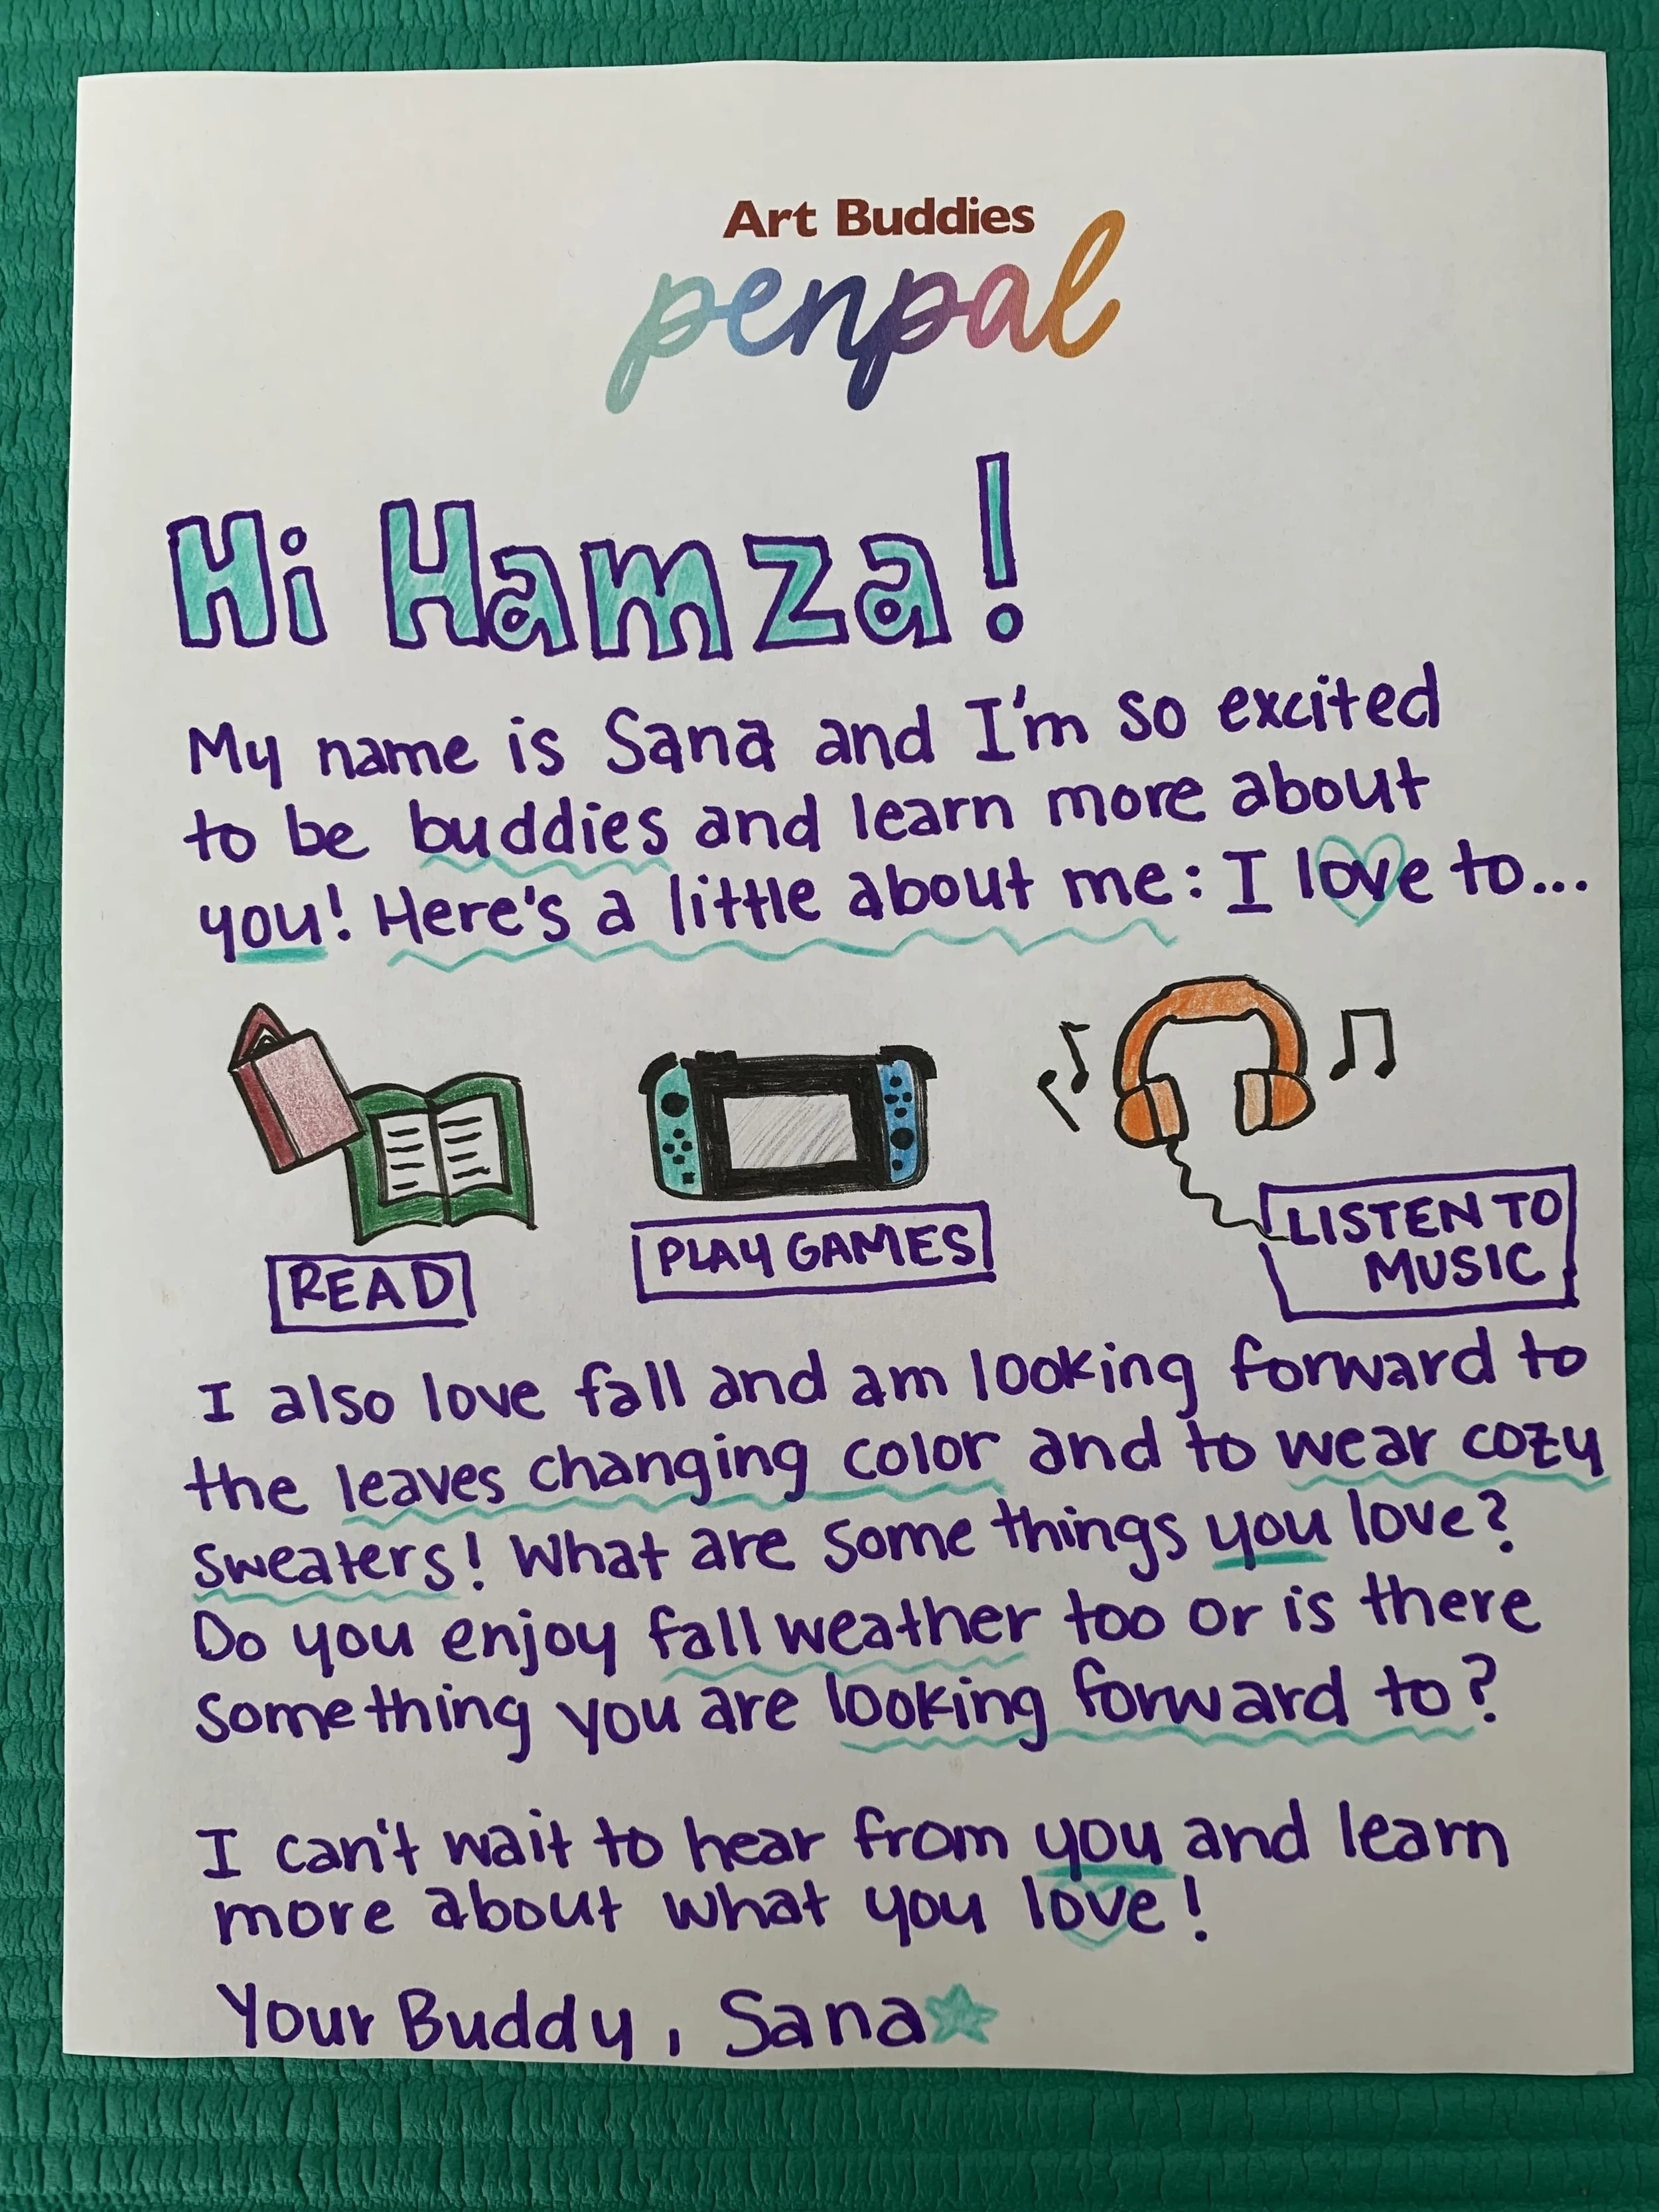 Art Buddies
penpal
Hi Hamza!
My name is Sana and I'm so excited
to be buddies and learn more about
you! Here's a little about me: I love to...
READ
PLAY GAMES
LISTEN TO
MUSIC
I also love fall and am looking forward to
the leaves changing color and to wear cozy
sweaters! What are some things you love?
Do you enjoy fall weather too or is there
something you are looking forward to?
I can't wait to hear from you and learn
more about what you love!
Your Buddy, Sana